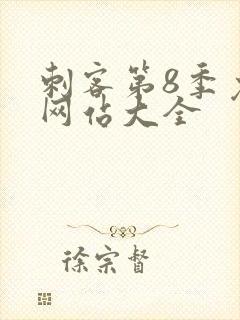 刺客第8季
网估大全
徐宗督